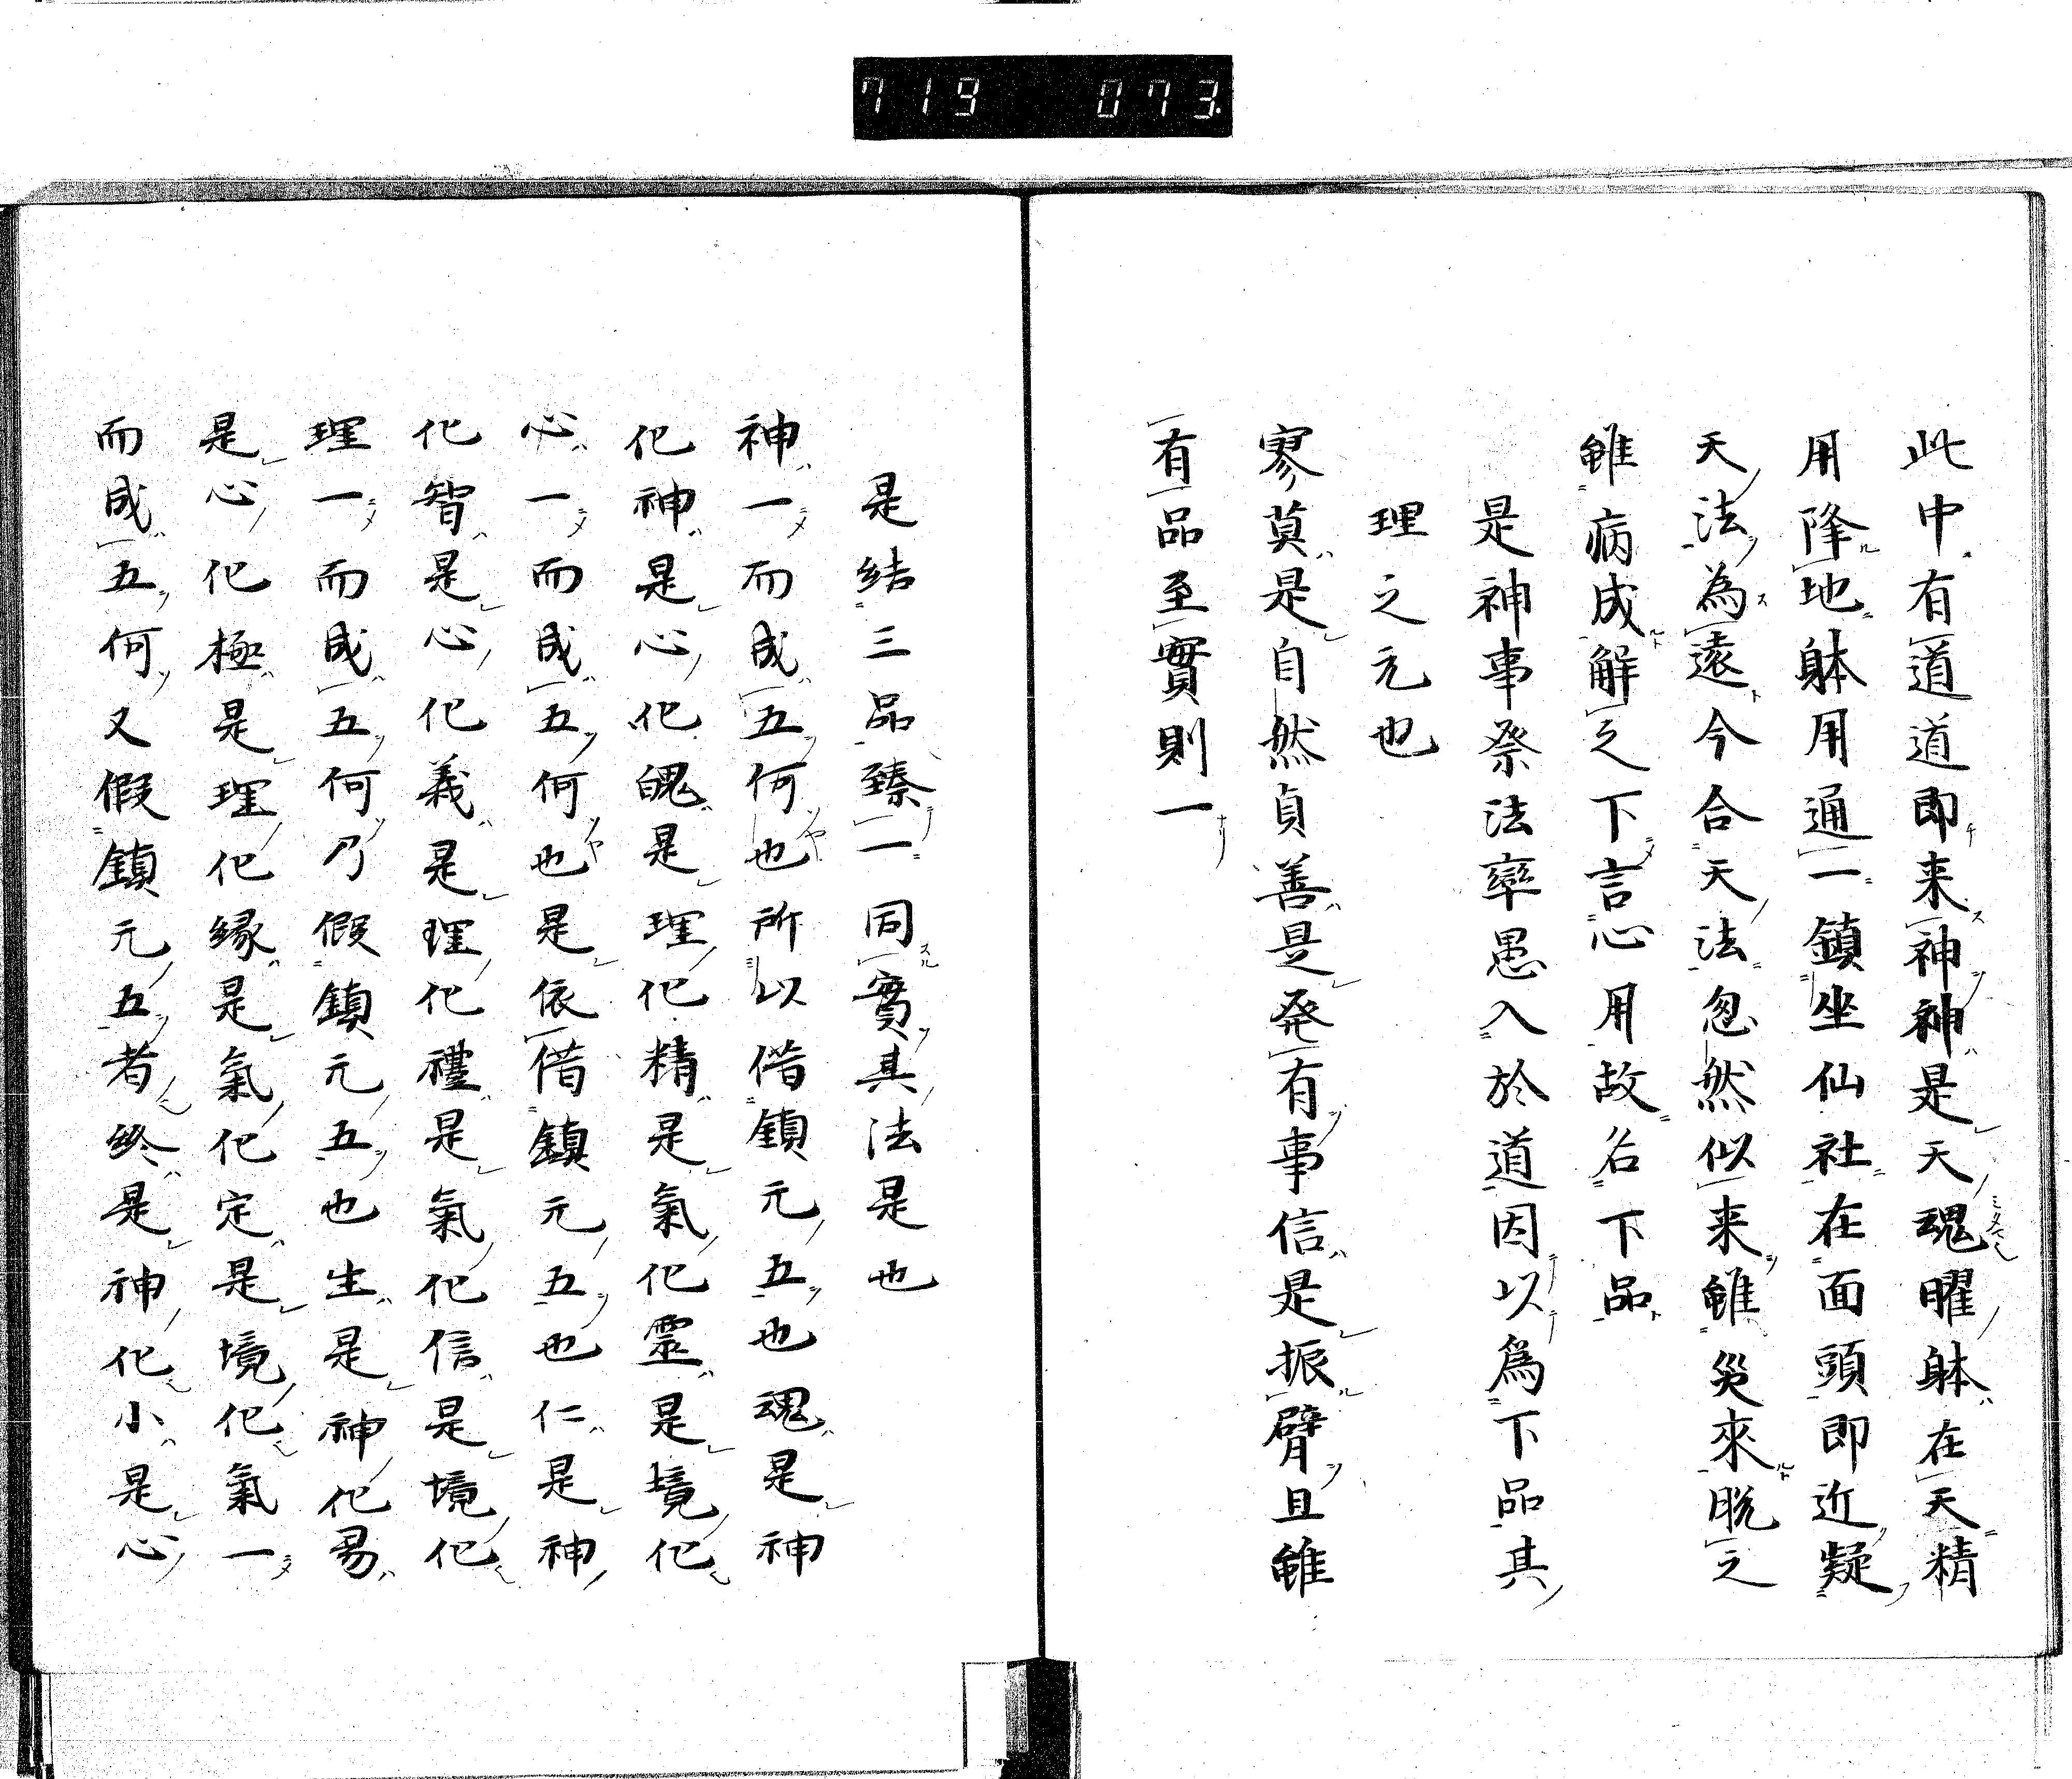 719 073
此中有道道即来神神是天魂曜躰在天精
用降地躰用通一鎮坐仙社在面頭即近疑
天法為遠今合天法忽然似来雖災來脱之
雖病成解之下言心用故名下品
是神事祭法率愚入於道因以爲下品其
理之元也
寥莫是自然貞善是発有事信是振臂且雖
有品至實則一
是結三品臻一同實其法是也
神一而成五何也所以借鎮元五也魂是神
化神是心化魄是理化精是氣化靈是境化
心一而成五何也是依借鎮元五也仁是神
化智是心化義是理化禮是氣化信是境化
理一而成五何乃假鎮元五也生是神化易
是心化極是理化縁是氣化定是境化氣一
而成五何又假鎮元五者終是神化小是心